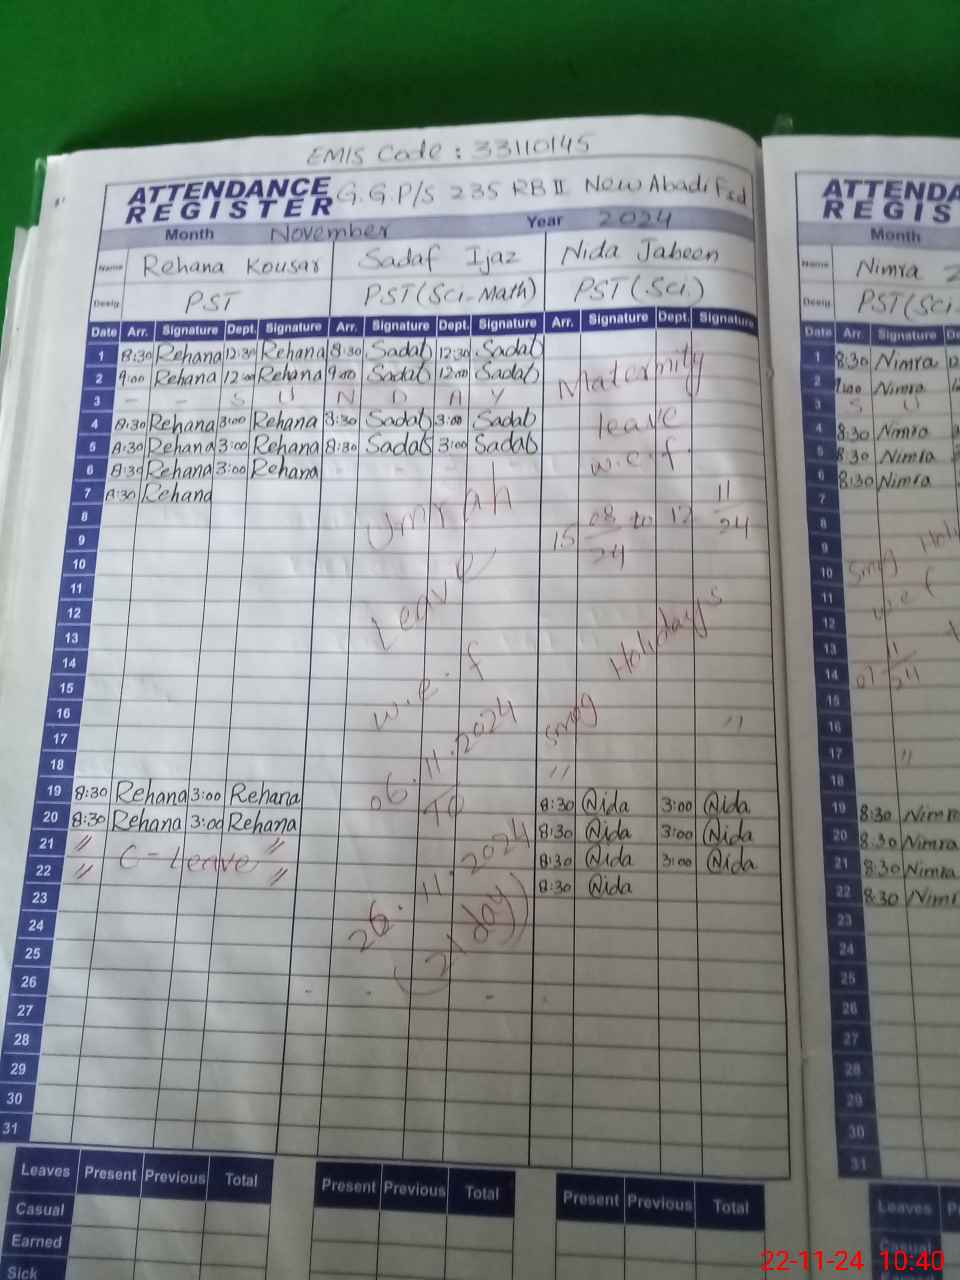 EMIS Code : 33110145
ATTENDANCE REGISTER G.G.P/S 235 RB II New Abadi Fsd
Month November Year 2024
Name Rehana Kousar Sadaf Ijaz Nida Jabeen
Desig. PST PST (Sci-Math) PST (Sci.)
Date Arr. Signature Dept. Signature Arr. Signature Dept. Signature Arr. Signature Dept. Signature
1 8:30 Rehana 12:30 Rehana 8:30 Sadaf 12:30 Sadaf
2 9:00 Rehana 12:00 Rehana 9:00 Sadaf 12:00 Sadaf
3 - - S U N D A Y
4 8:30 Rehana 3:00 Rehana 8:30 Sadaf 3:00 Sadaf
5 8:30 Rehana 3:00 Rehana 8:30 Sadaf 3:00 Sadaf
6 8:30 Rehana 3:00 Rehana
7 8:30 Rehana
8
9
10
11
12
13
14
15
16
17
18
19 8:30 Rehana 3:00 Rehana 8:30 Nida 3:00 Nida
20 8:30 Rehana 3:00 Rehana 8:30 Nida 3:00 Nida
21 " C-Leave " 8:30 Nida 3:00 Nida
22 " " 8:30 Nida
23
24
25
26
27
28
29
30
31
Umrah
Leave
w.e.f
06.11.2024
To
26.11.2024
(21 day)
Maternity
leave
w.e.f.
15 08/24 to 12 11/24
Smog Holidays
" "
Leaves Present Previous Total Present Previous Total Present Previous Total
Casual
Earned
Sick
ATTENDA
REGIS
Month
Name Nimra
Desig. PST (Sci-
Date Arr. Signature De
1 8:30 Nimra
2 9:00 Nimra
3 S U
4 8:30 Nimra
5 8:30 Nimra
6 8:30 Nimra
7
8
9
10
11
12
13
14
15
16
17 "
18
19 8:30 Nimra
20 8:30 Nimra
21 8:30 Nimra
22 8:30 Nimr
23
24
25
26
27
28
29
30
31
Smog Holi
w.e.f
Leaves
Casual
22-11-24 10:40